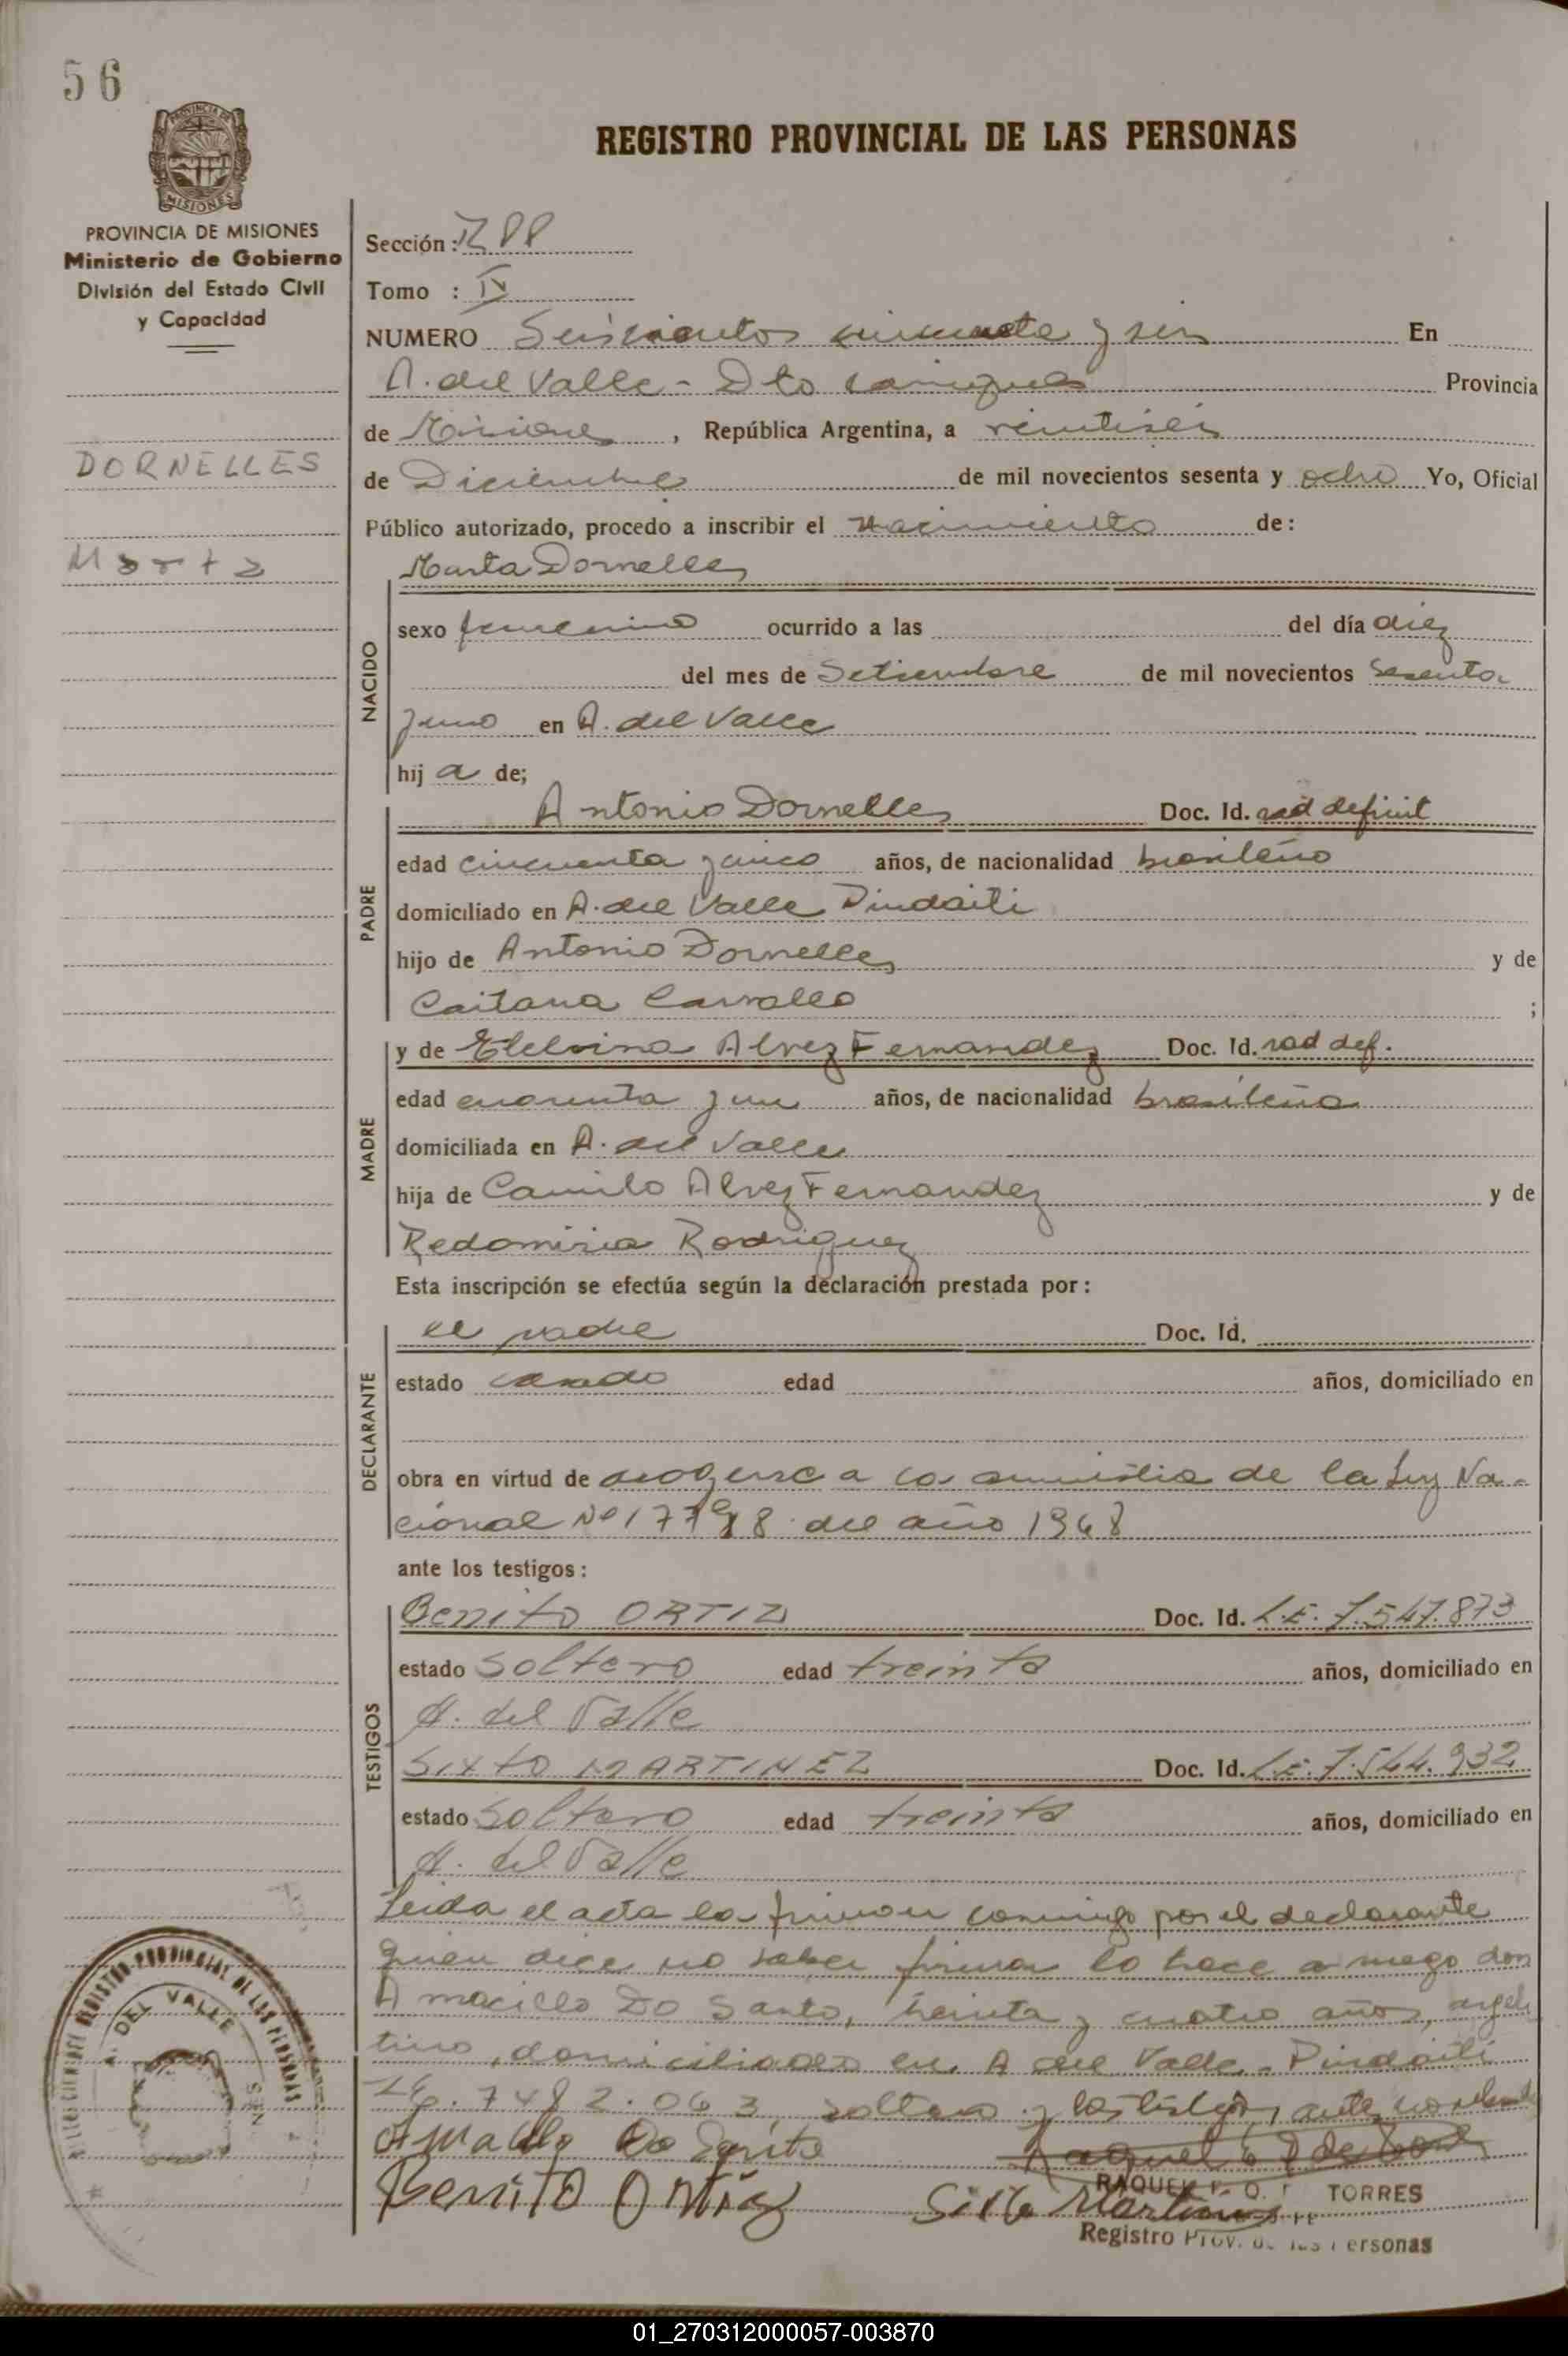 56
PROVINCIA DE
MISIONES
REGISTRO PROVINCIAL DE LAS PERSONAS
PROVINCIA DE MISIONES
Ministerio de Gobierno
División del Estado Civil
y Capacidad
DORNELLES
Marta
Sección:
Tomo : IV
NUMERO Seiscientos cincuenta y seis En
A. del Valle - Dto Cainguas Provincia
de Misiones, República Argentina, a veintiseis
de Diciembre de mil novecientos sesenta y ocho Yo, Oficial
Público autorizado, procedo a inscribir el nacimiento de:
NACIDO
Marta Dornelles
sexo femenino ocurrido a las del día diez
del mes de Setiembre de mil novecientos sesenta
y uno en A. del Valle
hij a de;
PADRE
Antonio Dornelles Doc. Id. rad definit
edad cincuenta y cinco años, de nacionalidad brasileño
domiciliado en A. del Valle Pindaiti
hijo de Antonio Dornelles y de
Caitana Carvalho ;
MADRE
y de Etelvina Alvez Fernandez Doc. Id. rad def.
edad cuarenta y un años, de nacionalidad brasileña
domiciliada en A. del Valle
hija de Camilo Alvez Fernandez y de
Redomisia Rodriguez
Esta inscripción se efectúa según la declaración prestada por:
DECLARANTE
el padre Doc. Id.
estado casado edad años, domiciliado en
obra en virtud de acogerse a la amnistia de la Ley Na-
cional Nº 17798 del año 1968
ante los testigos:
TESTIGOS
Benito ORTIZ Doc. Id. L.E. 7.547.873
estado soltero edad treinta años, domiciliado en
A. del Valle
Sixto MARTINEZ Doc. Id. L.E. 7.544.932
estado soltero edad treinta años, domiciliado en
A. del Valle
Leida el acta la firman conmigo por el declarante
quien dice no saber firmar lo hace a ruego don
Amacillo Do Santo, treinta y cuatro años, argen
tino, domiciliado en A del Valle - Pindaiti
7482.063, soltero y los testigos antes nombrados
Do Santo
Benito Ortiz
Sixto Martinez
RAQUEL TORRES
Registro Prov. de las Personas
REGISTRO PROVINCIAL DE LAS PERSONAS
A. DEL VALLE
01_270312000057-003870